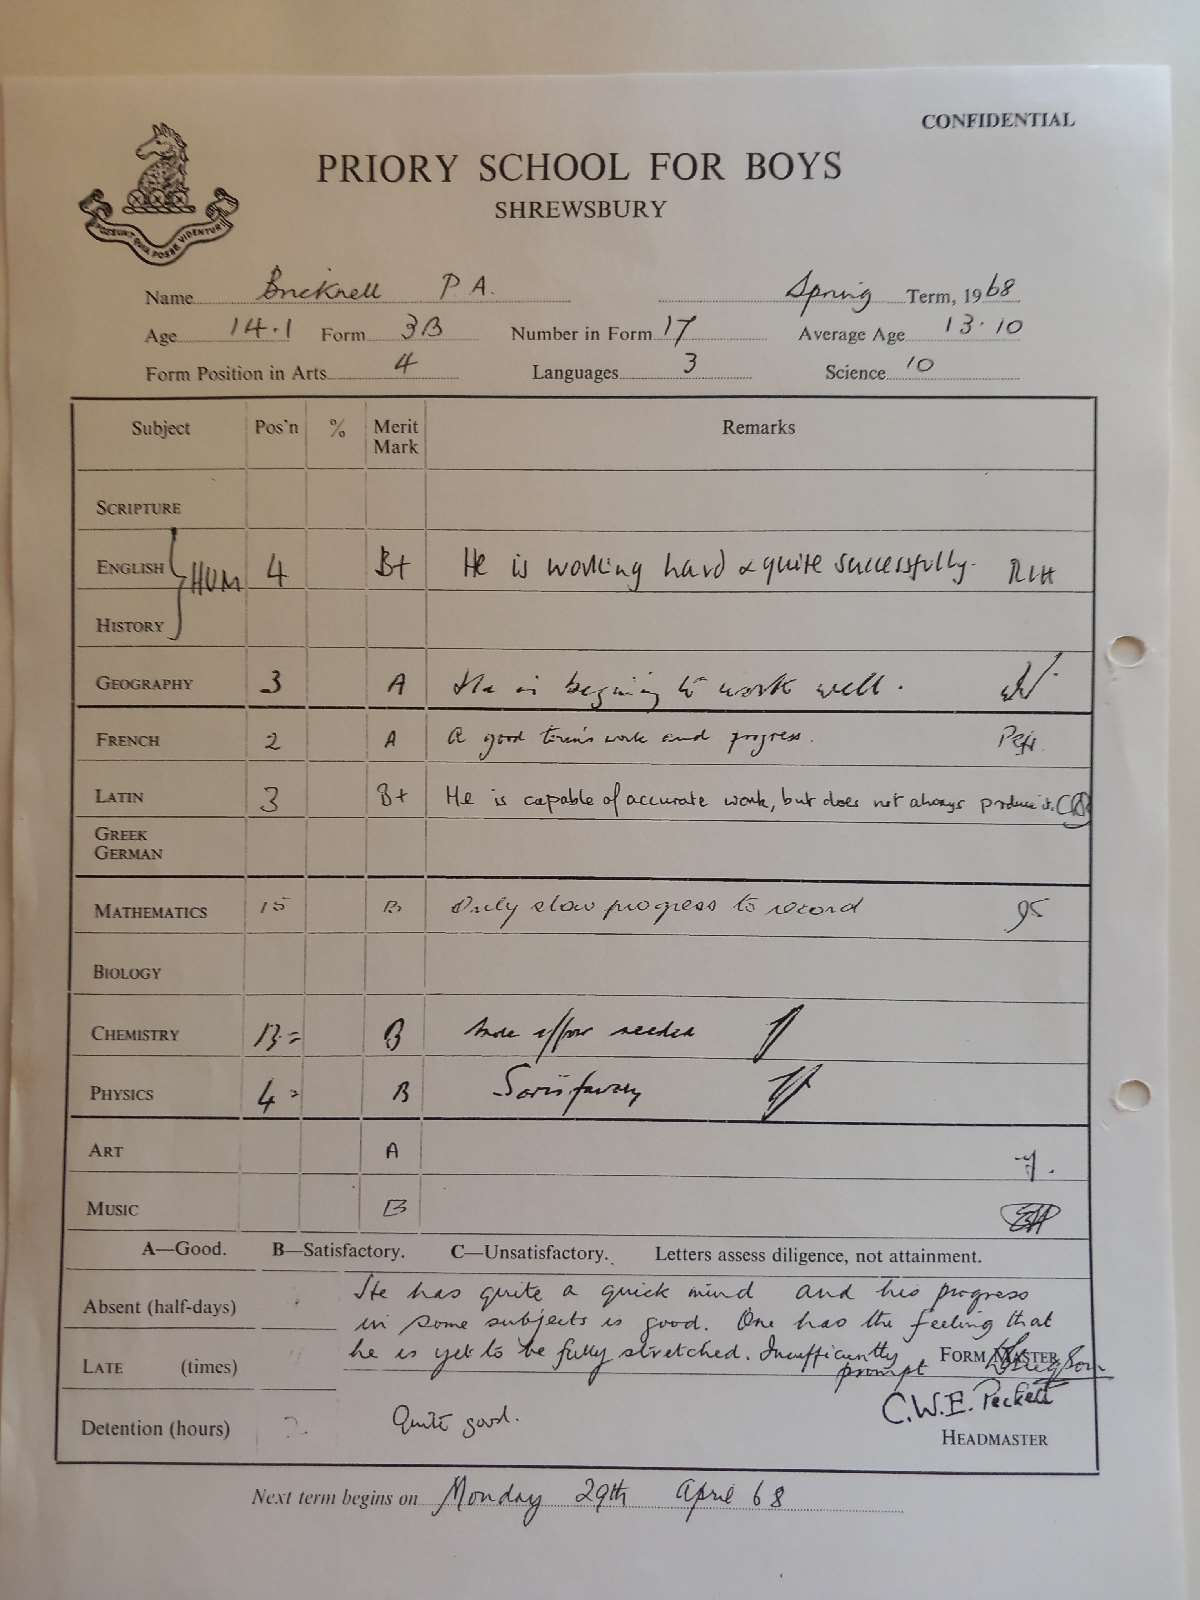 CONFIDENTIAL
PRIORY SCHOOL FOR BOYS
SHREWSBURY
POSSUNT QUIA POSSE VIDENTUR
Name Bricknell P.A. Spring Term, 1968
Age 14.1 Form 3B Number in Form 17 Average Age 13.10
Form Position in Arts 4 Languages 3 Science 10
Subject Pos'n % Merit Mark Remarks
SCRIPTURE
ENGLISH HUM 4 B+ He is working hard & quite successfully. RIH
HISTORY
GEOGRAPHY 3 A He is begining to work well.
FRENCH 2 A A good term's work and progress.
LATIN 3 B+ He is capable of accurate work, but does not always produce it.
GREEK
GERMAN
MATHEMATICS 15 B Only slow progress to record
BIOLOGY
CHEMISTRY 13= B More effort needed
PHYSICS 4= B Satisfactory
ART A
MUSIC B
A—Good. B—Satisfactory. C—Unsatisfactory. Letters assess diligence, not attainment.
Absent (half-days) He has quite a quick mind and his progress
in some subjects is good. One has the feeling that
LATE (times) he is yet to be fully stretched. Insufficiently prompt FORM MASTER
C.W.E. Peckett
Detention (hours) 2 Quite good. HEADMASTER
Next term begins on Monday 29th April 68